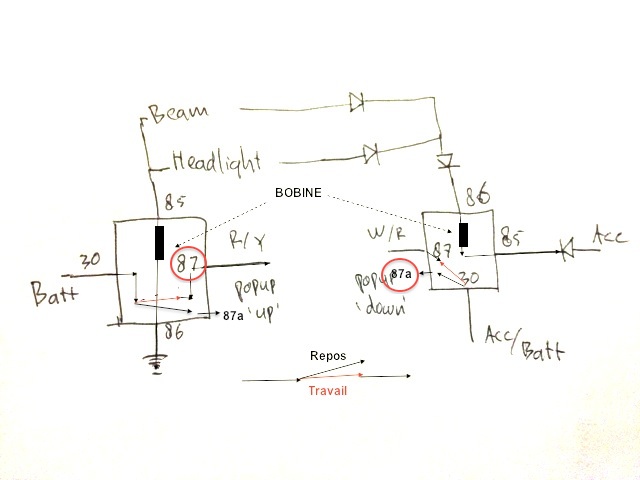 Beam
Headlight
85
BOBINE
86
30
87
R/Y
W/R
87
85
Acc
Batt
popup
'up'
87a
popup
87a
'down'
30
86
Acc/Batt
Repos
Travail